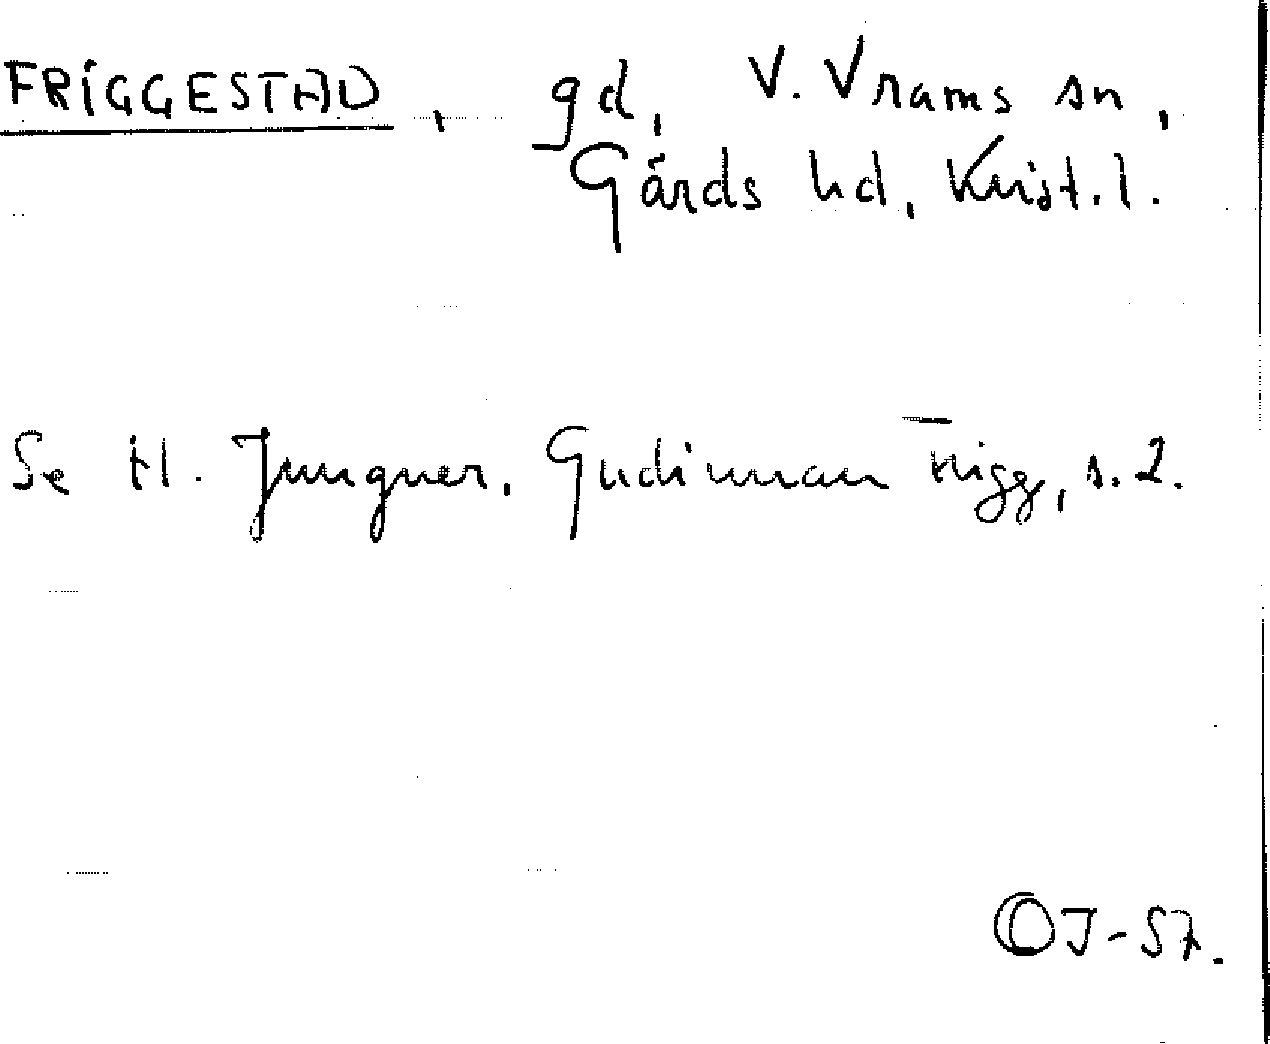 FRIGGESTAD, gd, V. Vrams sn,
Gärds hd, Krist. l.
Se H. Jungner, Gudinnan Frigg, s. 2.
OJ-57.